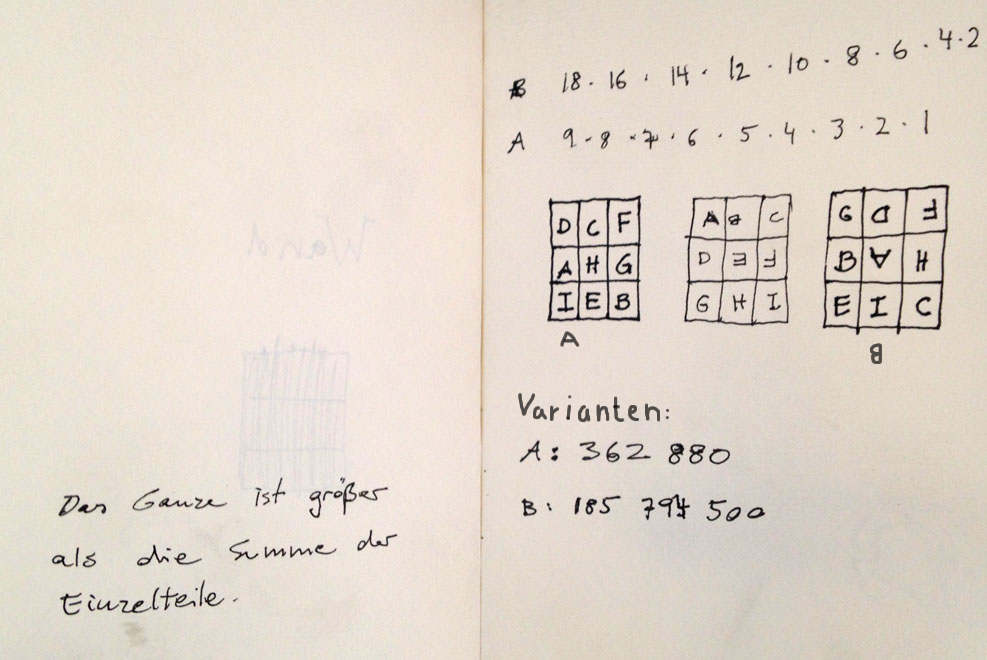 Das Ganze ist größer
als die Summe der
Einzelteile.
B 18 · 16 · 14 · 12 · 10 · 8 · 6 · 4 · 2
A 9 · 8 · 7 · 6 · 5 · 4 · 3 · 2 · 1
D C F
A H G
I E B
A
A B C
D E F
G H I
G D F
B A H
E I C
B
Varianten:
A: 362 880
B: 185 794 500